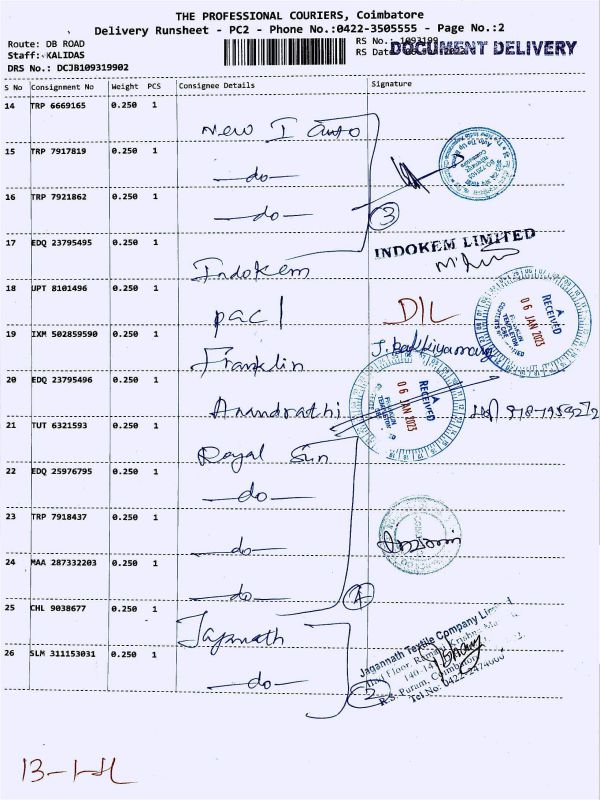 THE PROFESSIONAL COURIERS, Coimbatore
Delivery Runsheet - PC2 - Phone No.:0422-3505555 - Page No.:2
Route: DB ROAD
RS No.: 1093199
Staff: KALIDAS
RS Date
DOCUMENT DELIVERY
DRS No.: DCJB109319902
S No Consignment No Weight PCS Consignee Details Signature
14 TRP 6669165 0.250 1 New I Auto
15 TRP 7917819 0.250 1 —do—
16 TRP 7921862 0.250 1 —do—
3
17 EDQ 23795495 0.250 1 Indokem
INDOKEM LIMITED
18 UPT 8101496 0.250 1 pacl DIL
19 IXM 502859590 0.250 1 Franklin
RECEIVED
06 JAN 2023
20 EDQ 23795496 0.250 1 Anandrathi
RECEIVED
06 JAN 2023
21 TUT 6321593 0.250 1 Royal Sun
22 EDQ 25976795 0.250 1 —do—
23 TRP 7918437 0.250 1 —do—
24 MAA 287332203 0.250 1 —do—
4
25 CHL 9038677 0.250 1 Jagnnath
Jagannath Textile Company Limited
26 SLM 311153031 0.250 1 —do—
2
R.S. Puram, Coimbatore
Tel No: 0422-2474000